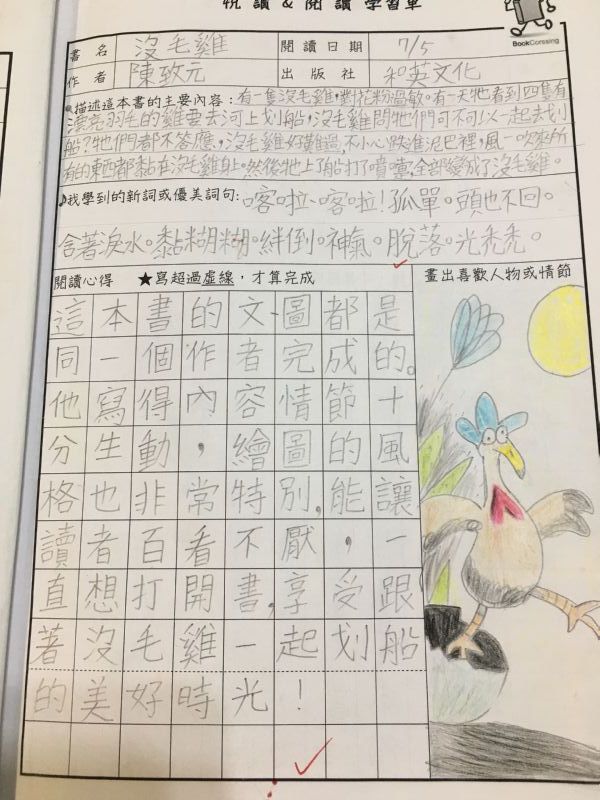 悅讀&閱讀學習單
BookCrossing
書名 沒毛雞 閱讀日期 7/5
作者 陳致元 出版社 和英文化
描述這本書的主要內容:有一隻沒毛雞,對花粉過敏。有一天牠看到四隻有
漂亮羽毛的雞要去河上划船,沒毛雞問牠們可不可以一起去划
船?牠們都不答應,沒毛雞好難過,不小心跌進泥巴裡,風一吹來所
有的東西都黏在沒毛雞身上。然後牠上了船打了噴嚏,全部變成了沒毛雞。
♪找學到的新詞或優美詞句:喀啦、喀啦!孤單。頭也不回。
含著淚水。黏糊糊。絆倒。神氣。脫落。光禿禿。
閱讀心得 ★寫超過虛線,才算完成
畫出喜歡人物或情節
這本書的文、圖都是
同一個作者完成的。
他寫得內容情節十
分生動,繪圖的風
格也非常特別,能讓
讀者百看不厭,一
直想打開書,享受跟
著沒毛雞一起划船
的美好時光!